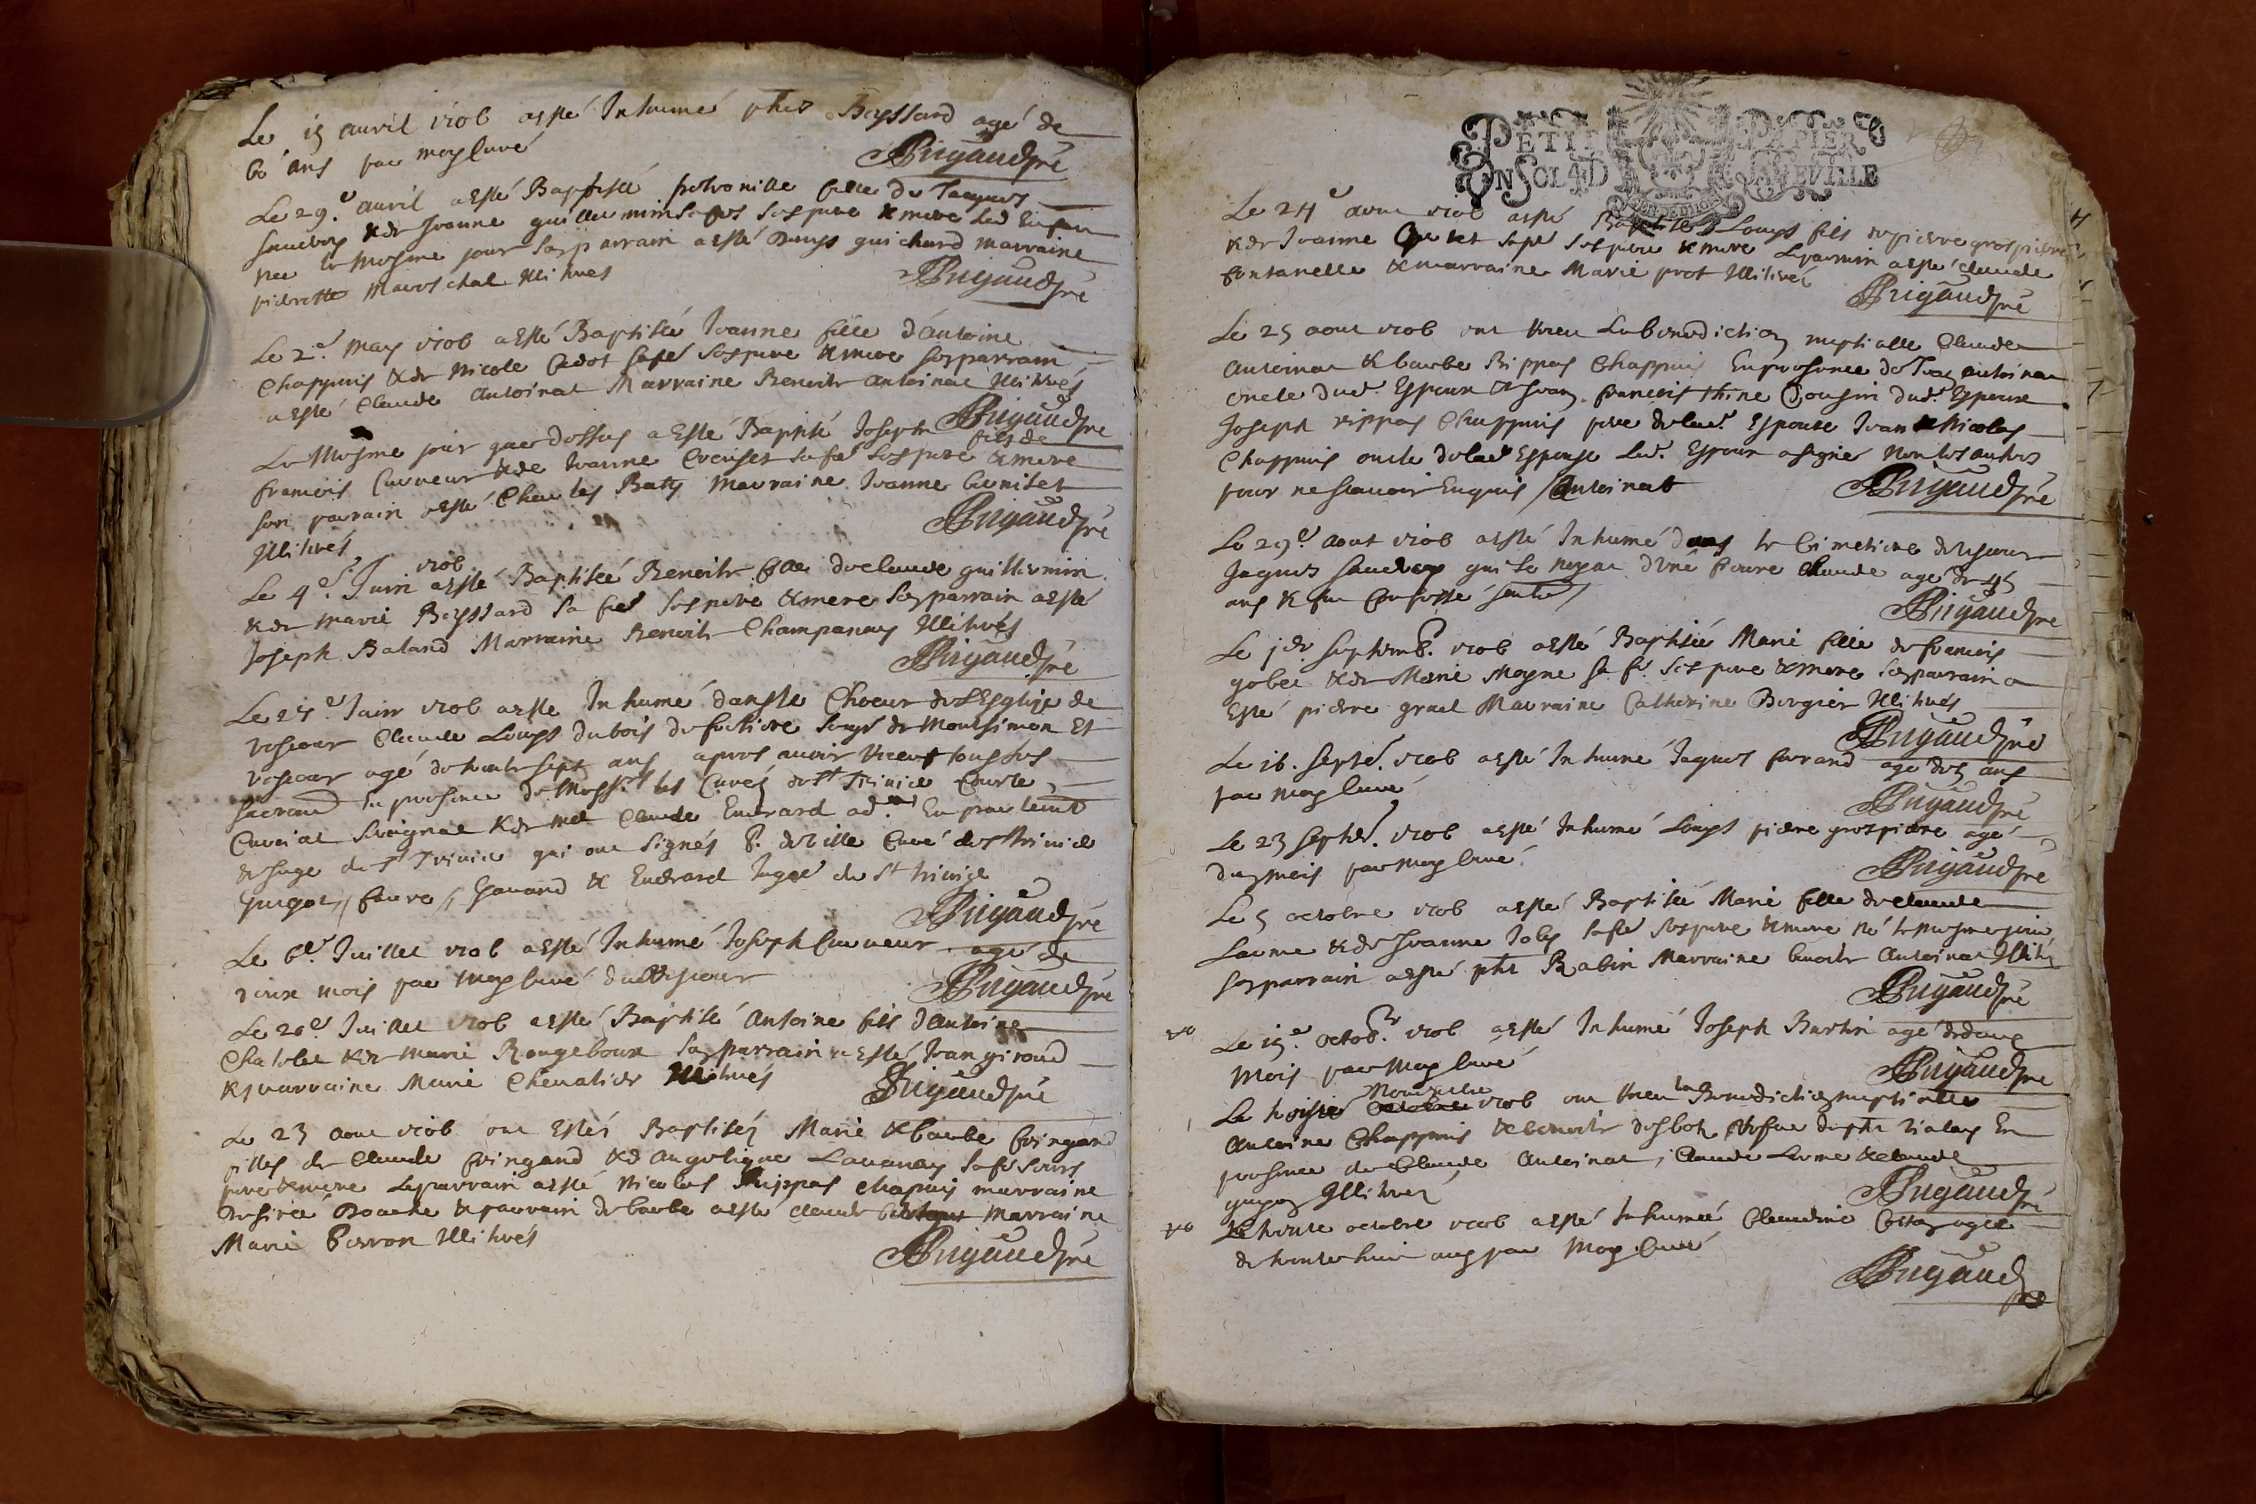 Le 15 avril 1706 a esté Inhumé phés Beyssard agé de
60 ans par moy curé
Rigaud pre
Le 29e avril a esté Baptisée petronille fille de Jaques
& de Jeanne guillemin sa fe ses pere & mere
née le mesme jour son parrain a esté Denys guichard marraine
pierrette mareschal Illitrés
Rigaud pre
Le 2e may 1706 a esté Baptisée Jeanne fille d'antoine
Chappuis & de Nicole Cadot sa fe ses pere & mere son parrain
a esté Claude Antoinat Marraine Benoite antoinat Illitrés
Rigaud pre
Le Mesme jour que dessus a Esté Baptisé Joseph fils de
francois Cuvveur & de Jeanne Creuset sa fe ses pere & mere
son parrain a esté Charles Batty Marraine Jeanne
Illitrés
Rigaud pre
Le 4e Juin 1706 a esté Baptisée Benoite fille de claude guillermin
& de marie Beyssard sa fe ses pere & mere son parrain a esté
Joseph Baland Marraine Benoite Champanay Illitrés
Rigaud pre
Le 27e Juin 1706 a esté Inhumé dans le Choeur de l'Esglise de
Claude Louys dubois de seigr de Montsimon Et
agé de trente sept ans apres avoir receu tous ses
sacremt En presence de Messrs les Curés de St Trivier Courte
& de me Claude Everard adt En parlemt
& Juge de St Trivier qui ont signés P. deville Curé de St trivier
favre Gavand & Everard Juge de St trivier
Rigaud pre
Le 6e Juillet 1706 a esté Inhumé Joseph Cuvveur agé de
mois par moy Curé
Rigaud pre
Le 20e Juillet 1706 a esté Baptisé Antoine fils d'Antoine
Chatelet & de marie Rongeboux son parrain a esté Jean giroud
& marraine Marie Chevalier Illitrés
Rigaud pre
Le 23 aout 1706 ont Estés Baptisés Marie & barbe
filles de Claude & d'angelique Lavanay sa fe leurs
pere & mere Le parrain a esté Nicolas Rippas chapuis marraine
& parrain de barbe a esté claude Marraine
Marie Perron Illitrés
Rigaud pre
PETIT PAPIER
UN SOL 4 D LA FEVILLE
Le 24e aout 1706 a esté Baptisé Louys fils de pierre grospierre
& de Jeanne sa fe ses pere & mere Le parrain a esté claude
fontanelle & marraine Marie prost Illitrés
Rigaud pre
Le 25 aout 1706 ont receu La benediction nuptialle Claude
Antoinat & barbe Rippas Chappuis En presence de Jean antoinat
oncle dudt Espoux & Jean francois cousin dudt Espoux
Joseph rippas Chappuis pere de ladt Espouse Jean & Nicolas
Chappuis oncle de ladt Espouse Ledt Espoux a signé Non les autres
pour ne scavoir Enquis Antoinat
Rigaud pre
Le 29e Aout 1706 a esté Inhumé dans le Cimetiere
Jaques qui se noya agé de 45
ans
Rigaud pre
Le 1er septemb. 1706 a esté Baptisée Marie fille de francois
gobet & de Marie Moyne sa fe ses pere & mere son parrain a
Esté pierre Marraine Catherine Bergier Illitrés
Rigaud pre
Le 16. septe. 1706 a esté Inhumé Jaques ferrand agé de 5 ans
par moy curé
Rigaud pre
Le 23 septe. 1706 a esté Inhumé Louys pierre grospierre agé
d'un mois par moy Curé
Rigaud pre
Le 5 octobre 1706 a esté Baptisée Marie fille de claude
Larme & de Jeanne Joly sa fe ses pere & mere né le mesme jour
son parrain a esté pht Rabin Marraine benoite Antoinat Illit
Rigaud pre
Le 15e octob. 1706 a esté Inhumé Joseph Burtin agé de deux
Mois par Moy Curé
Rigaud pre
Novembre
Le troisie octobre 1706 ont receu la Benediction nuptialle
Antoine Chappuis & benoite desbot vefve En
presence de Claude Antoinat, Claude Larme & claude
guigot Illitrés
Rigaud pre
Le trente octobre 1706 a esté Inhumée Claudine agée
de trente huit ans par Moy Curé
Rigaud
pre